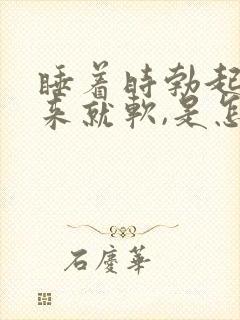 睡着時勃起
來就軟,是怎
石慶華